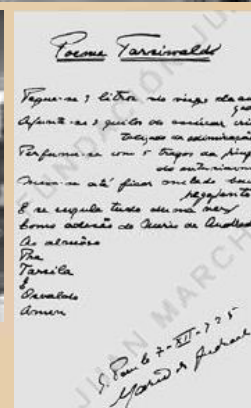 Poema Tarsiwaldo
Pegue-se 3 litros do visgo da
Ajunte-se 3 quilos de assucar
da admiração
Perfume-se com 5 tragos da pinga
do
Mexa-se até ficar melado bem
pegajento
E se engula tudo duma vez
Como adesão de Mario de Andrade
Ao almôço
Pra
Tarsila
E
Osvaldo
Amen
S. Paulo 7-XI-925
Mario de Andrade
FUNDACIÓN JUAN MARCH